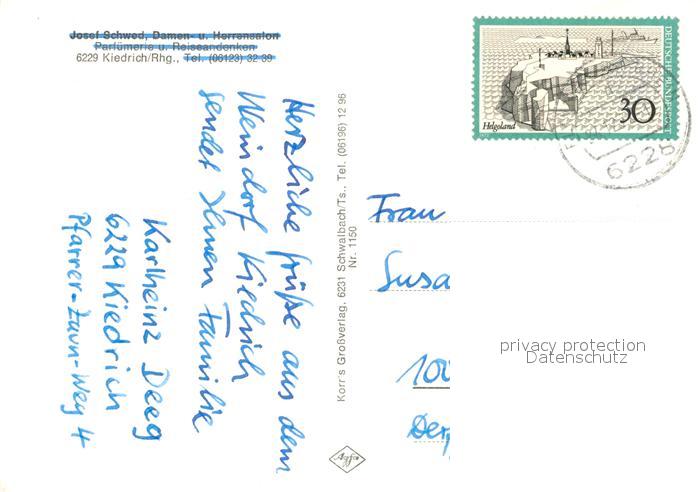 Josef Schwed, Damen- u. Herrensalon
Parfümerie u. Reiseandenken
6229 Kiedrich/Rhg., Tel. (06123) 32 39
Herzliche Grüße aus dem
Weindorf Kiedrich
sendet Ihnen Familie
Karlheinz Deeg
6229 Kiedrich
Pfarrer-Zaun-Weg 4
Korr's Großverlag, 6231 Schwalbach/Ts., Tel. (06196) 12 96
Nr. 1150
Agfa
DEUTSCHE BUNDESPOST
Helgoland
30
6228
Frau
Susa
100
Der
privacy protection
Datenschutz